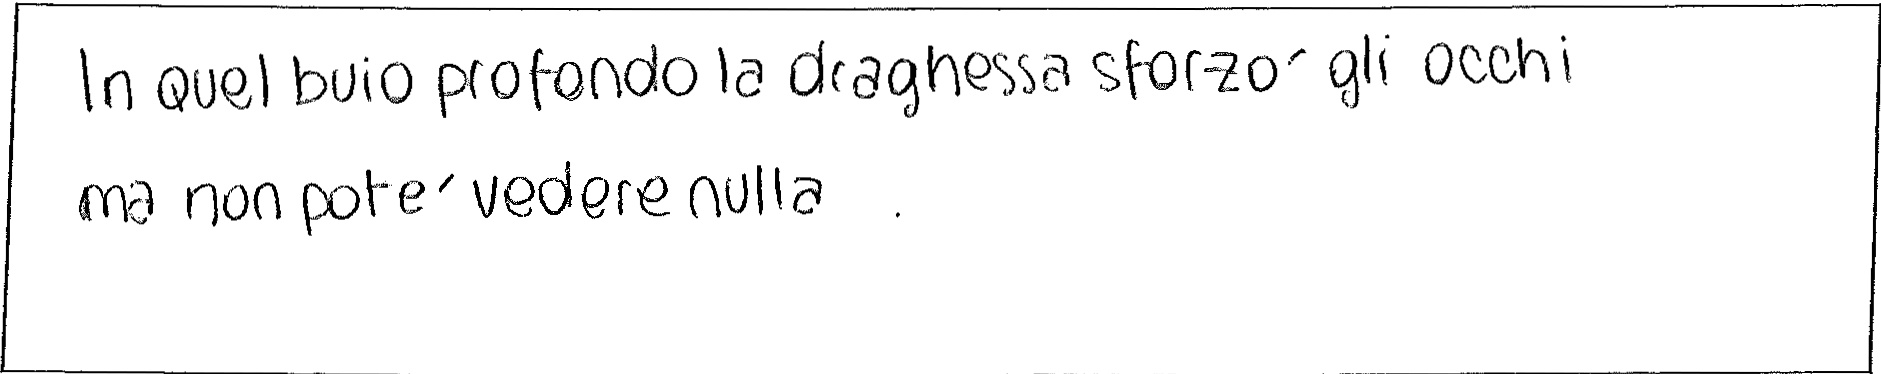 In quel buio profondo la draghessa sforzo´ gli occhi
ma non pote´ vedere nulla .